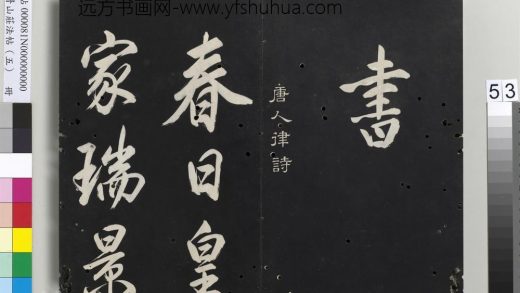 远方书画网-www.yfshuhua.com
書
唐人律詩
春日皇
家瑞景
53
帖 000081N000000000
山莊法帖（五） 冊